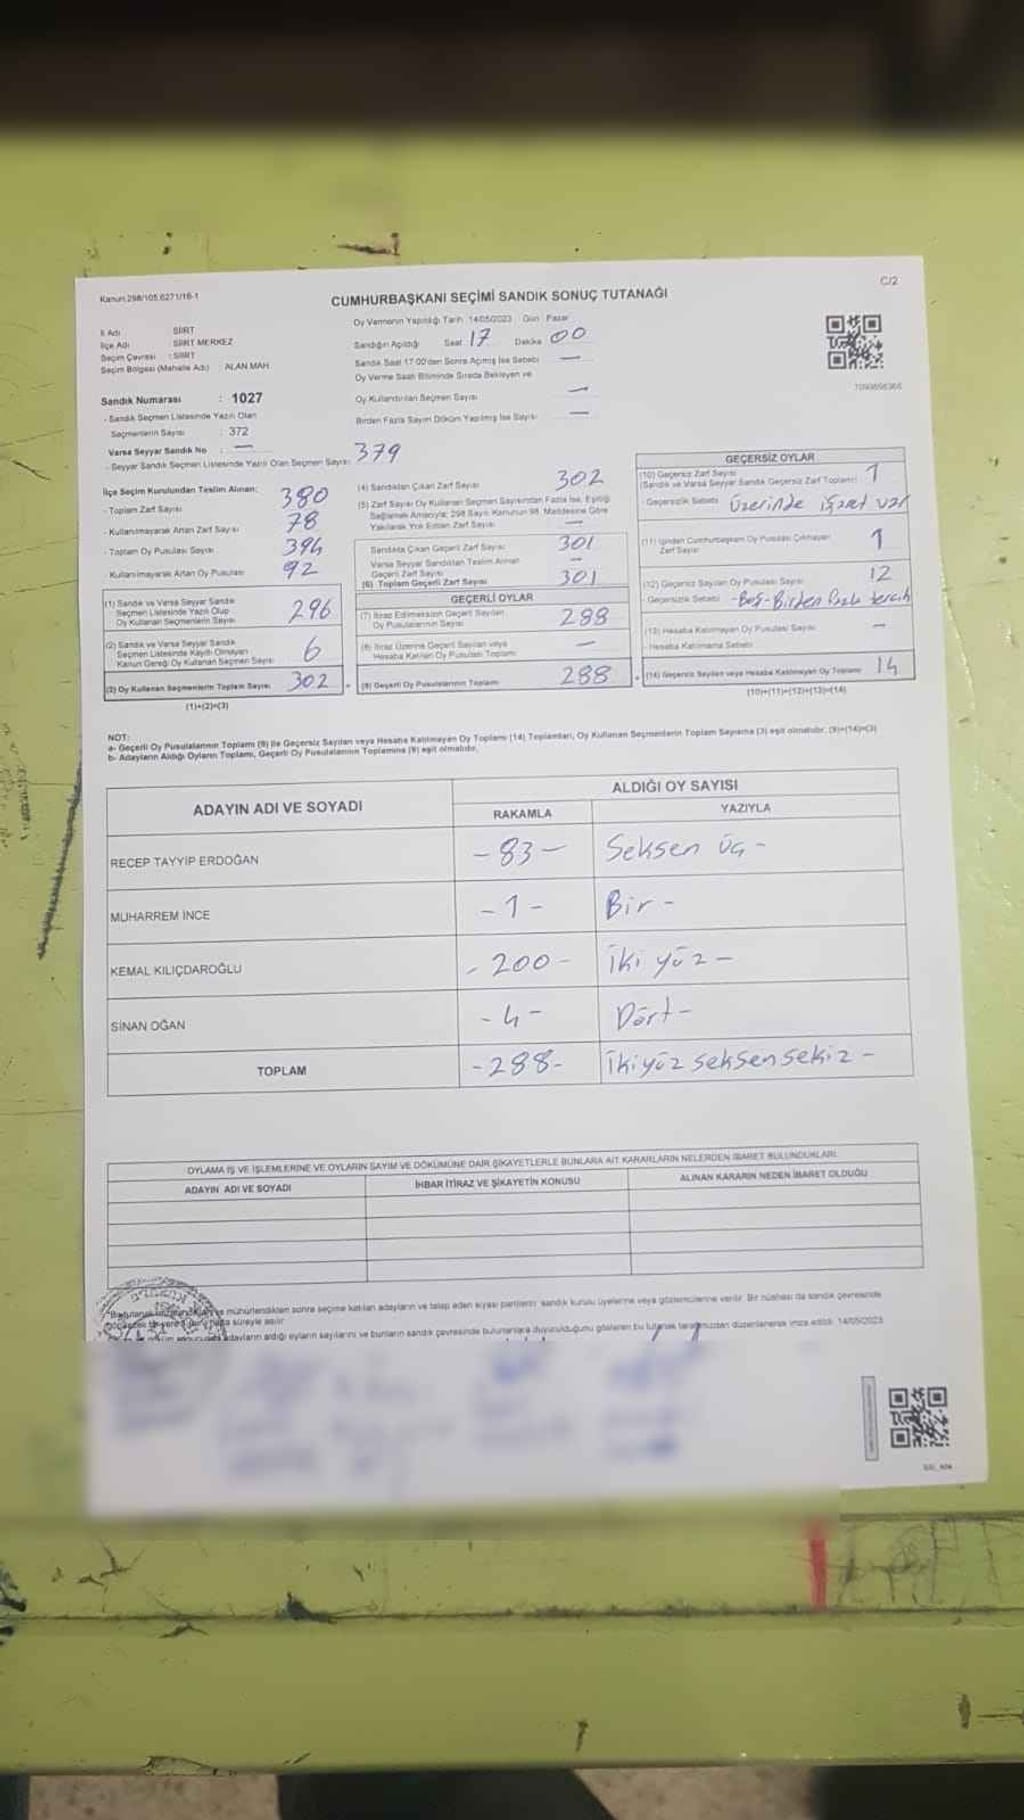 Kanun:298/105,6271/16-1
C/2
CUMHURBAŞKANI SEÇİMİ SANDIK SONUÇ TUTANAĞI
İl Adı : SİİRT
İlçe Adı : SİİRT MERKEZ
Seçim Çevresi : SİİRT
Seçim Bölgesi (Mahalle Adı) : ALAN MAH.
Sandık Numarası : 1027
- Sandık Seçmen Listesinde Yazılı Olan
Seçmenlerin Sayısı : 372
Varsa Seyyar Sandık No : —
- Seyyar Sandık Seçmen Listesinde Yazılı Olan Seçmen Sayısı: 379
Oy Vermenin Yapıldığı Tarih: 14/05/2023 Gün: Pazar
Sandığın Açıldığı Saat 17 Dakika 00
Sandık Saat 17:00'den Sonra Açılmış İse Sebebi —
Oy Verme Saati Bitiminde Sırada Bekleyen ve
Oy Kullandırılan Seçmen Sayısı —
Birden Fazla Sayım Döküm Yapılmış İse Sayısı —
İlçe Seçim Kurulundan Teslim Alınan:
- Toplam Zarf Sayısı 380
- Kullanılmayarak Artan Zarf Sayısı 78
- Toplam Oy Pusulası Sayısı 394
- Kullanılmayarak Artan Oy Pusulası 92
(1) Sandık ve Varsa Seyyar Sandık
Seçmen Listesinde Yazılı Olup
Oy Kullanan Seçmenlerin Sayısı 296
(2) Sandık ve Varsa Seyyar Sandık
Seçmen Listesinde Kayıtlı Olmayan
Kanun Gereği Oy Kullanan Seçmen Sayısı 6
(3) Oy Kullanan Seçmenlerin Toplam Sayısı 302
(1)+(2)=(3)
(4) Sandıktan Çıkan Zarf Sayısı 302
(5) Zarf Sayısı Oy Kullanan Seçmen Sayısından Fazla İse, Eşitliği
Sağlamak Amacıyla; 298 Sayılı Kanunun 98. Maddesine Göre
Yakılarak Yok Edilen Zarf Sayısı —
Sandıkta Çıkan Geçerli Zarf Sayısı 301
Varsa Seyyar Sandıktan Teslim Alınan
Geçerli Zarf Sayısı —
(6) Toplam Geçerli Zarf Sayısı 301
GEÇERLİ OYLAR
(7) İtiraz Edilmeksizin Geçerli Sayılan
Oy Pusulalarının Sayısı 288
(8) İtiraz Üzerine Geçerli Sayılan veya
Hesaba Katılan Oy Pusulası Toplamı —
(9) Geçerli Oy Pusulalarının Toplamı 288
GEÇERSİZ OYLAR
(10) Geçersiz Zarf Sayısı
(Sandık ve Varsa Seyyar Sandık Geçersiz Zarf Toplamı) 1
- Geçersizlik Sebebi Üzerinde işaret var
(11) İçinden Cumhurbaşkanı Oy Pusulası Çıkmayan
Zarf Sayısı 1
(12) Geçersiz Sayılan Oy Pusulası Sayısı 12
- Geçersizlik Sebebi - Boş - Birden fazla tercih
(13) Hesaba Katılmayan Oy Pusulası Sayısı —
- Hesaba Katılmama Sebebi
(14) Geçersiz Sayılan veya Hesaba Katılmayan Oy Toplamı 14
(10)+(11)+(12)+(13)=(14)
NOT:
a- Geçerli Oy Pusulalarının Toplamı (9) ile Geçersiz Sayılan veya Hesaba Katılmayan Oy Toplamı (14) Toplamları, Oy Kullanan Seçmenlerin Toplam Sayısına (3) eşit olmalıdır. (9)+(14)=(3)
b- Adayların Aldığı Oyların Toplamı, Geçerli Oy Pusulalarının Toplamına (9) eşit olmalıdır.
ADAYIN ADI VE SOYADI
ALDIĞI OY SAYISI
RAKAMLA YAZIYLA
RECEP TAYYİP ERDOĞAN - 83 - Seksen üç -
MUHARREM İNCE - 1 - Bir -
KEMAL KILIÇDAROĞLU - 200 - İki yüz -
SİNAN OĞAN - 4 - Dört -
TOPLAM - 288 - İkiyüz seksensekiz -
OYLAMA İŞ VE İŞLEMLERİNE VE OYLARIN SAYIM VE DÖKÜMÜNE DAİR ŞİKAYETLERLE BUNLARA AİT KARARLARIN NELERDEN İBARET BULUNDUKLARI
ADAYIN ADI VE SOYADI İHBAR İTİRAZ VE ŞİKAYETİN KONUSU ALINAN KARARIN NEDEN İBARET OLDUĞU
mühürlendikten sonra seçime katılan adayların ve talep eden siyasi partilerin sandık kurulu üyelerine veya gözlemcilerine verilir. Bir nüshası da sandık çevresinde
süreyle asılır.
adayların aldığı oyların sayılarını ve bunların sandık çevresinde bulunanlara duyurulduğunu gösteren bu tutanak tarafımızdan düzenlenerek imza edildi. 14/05/2023